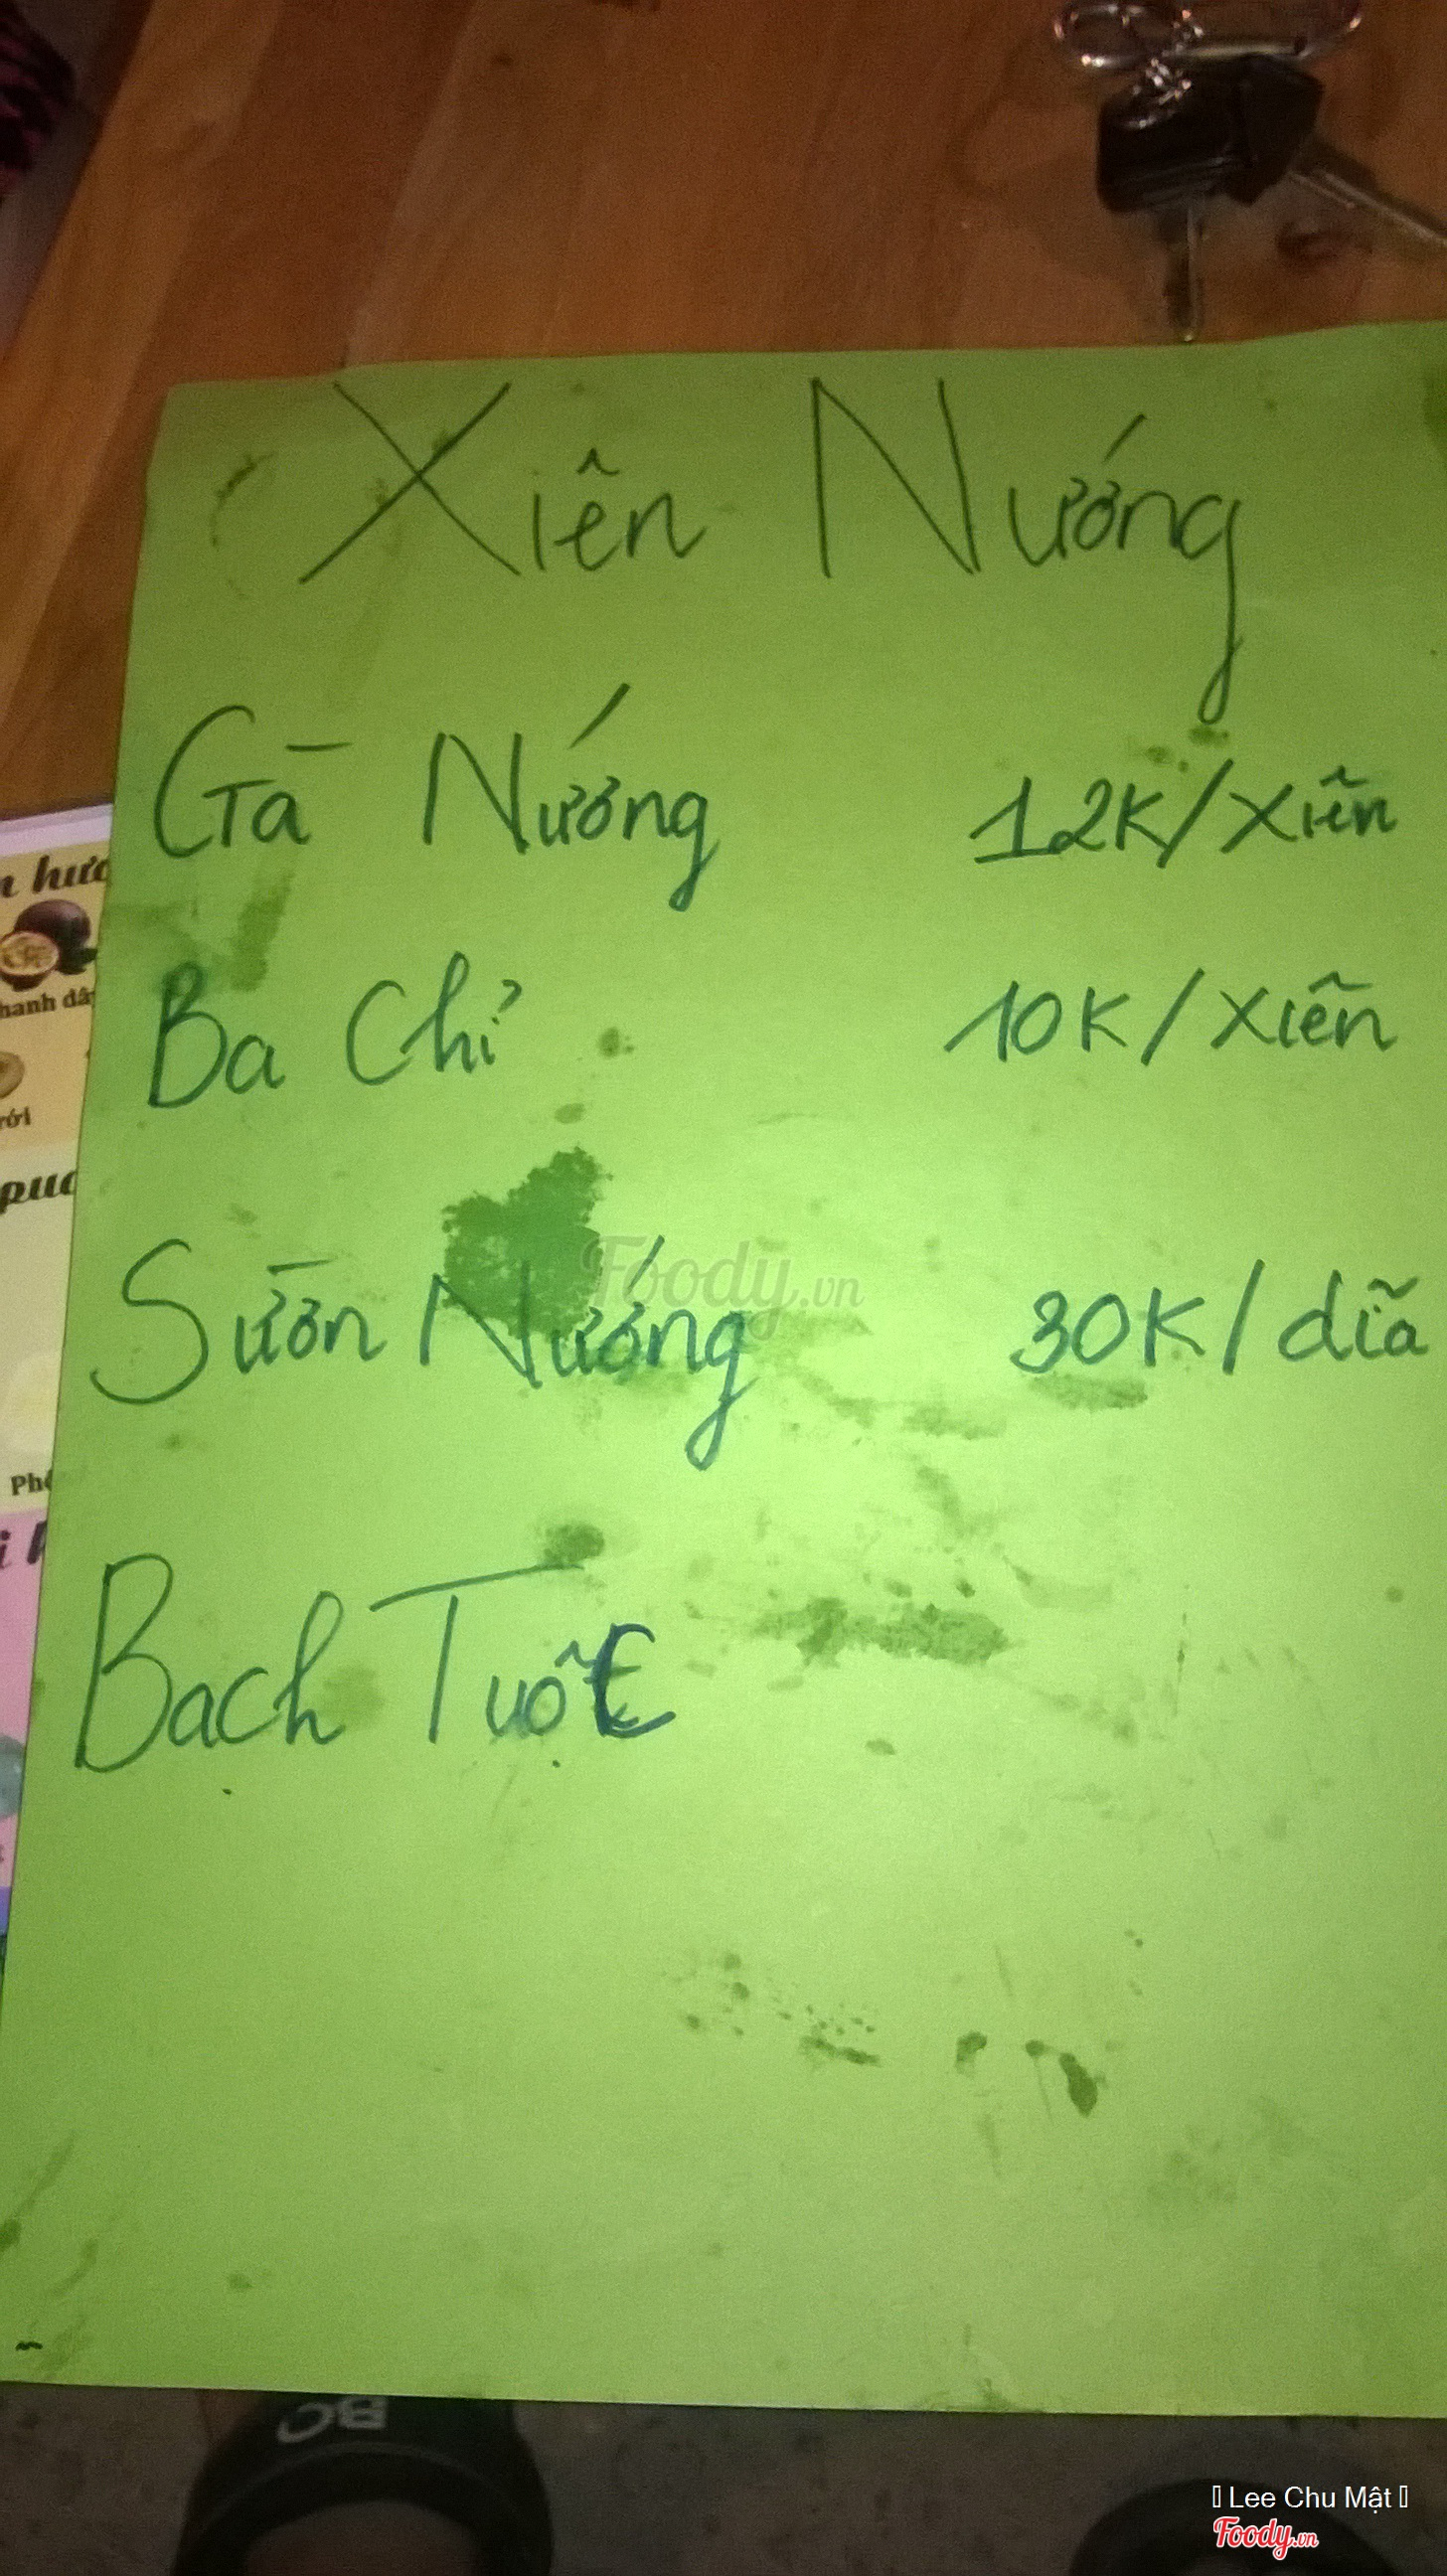 Xiên Nướng
Gà Nướng 12K/Xiên
Ba Chỉ 10K/Xiên
Sườn Nướng 30K/dĩa
Bạch Tuộc
hanh dâ
pud
Phô
Foody.vn
BC
Lee Chu Mật
Foody.vn